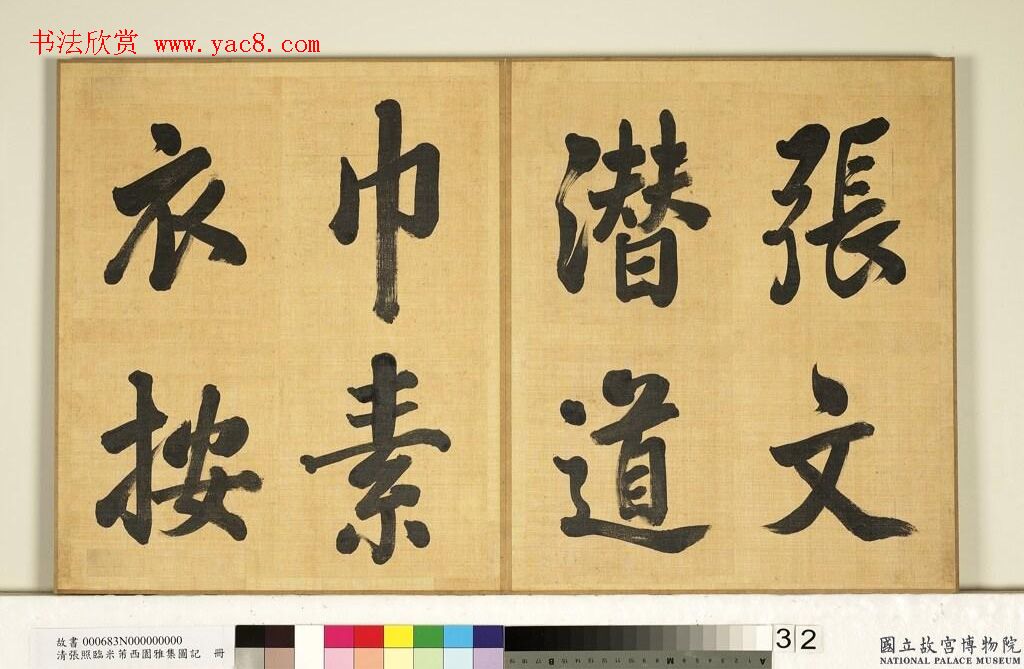 书法欣赏 www.yac8.com
張文
潛道
巾素
衣按
故書 000683N000000000
清張照臨米芾西園雅集圖記 冊
32
國立故宮博物院
NATIONAL PALACE MUSEUM